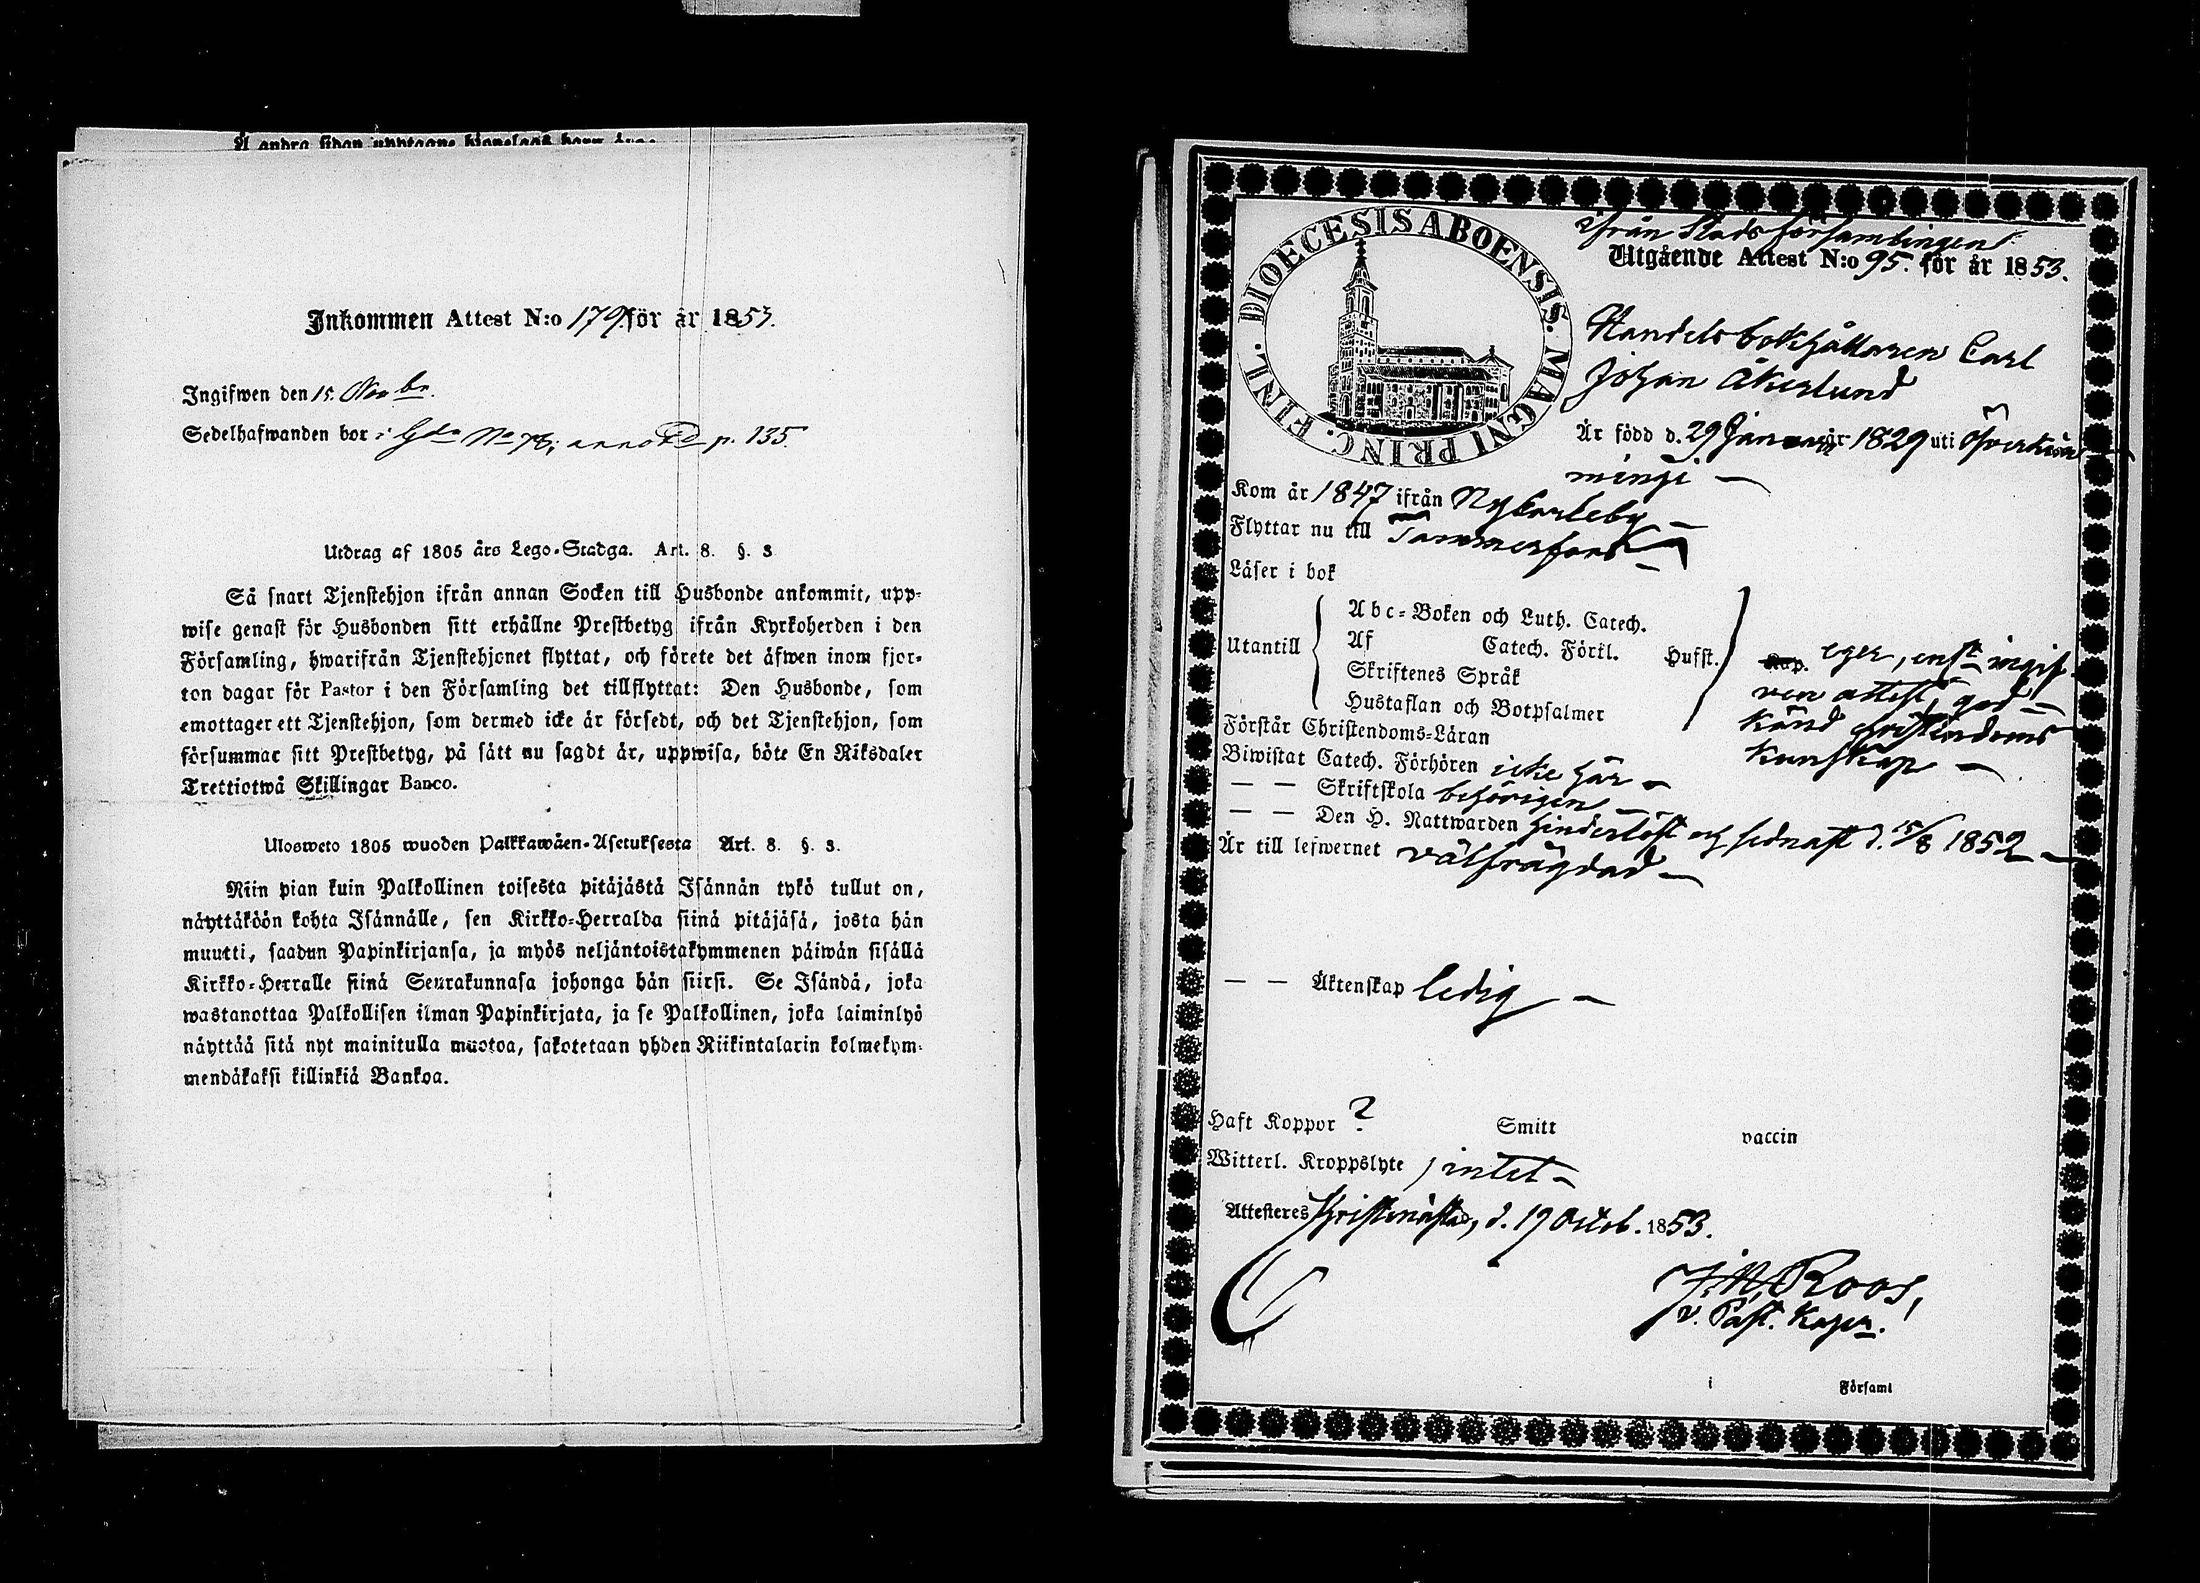 Å andra sidan upptagne
Inkommen Attest N:o 179 för år 1853.
Ingifwen den 15. Novbr.
Sedelhafwanden bor i Gdn No 78; p. 135.
Utdrag af 1805 års Lego-Stadga. Art. 8. §. 3
Så snart Tjenstehjon ifrån annan Socken till Husbonde ankommit, upp-
wise genast för Husbonden sitt erhållne Prestbetyg ifrån Kyrkoherden i den
Församling, hwarifrån Tjenstehjonet flyttat, och förete det äfwen inom fjor-
ton dagar för Pastor i den Församling det tillflyttat: Den Husbonde, som
emottager ett Tjenstehjon, som dermed icke är försedt, och det Tjenstehjon, som
försummar sitt Prestbetyg, på sätt nu sagdt är, uppwisa, böte En Riksdaler
Trettiotwå Skillingar Banco.
Ulosweto 1805 wuoden Palkkawäen-Asetuksesta Art. 8. §. 3.
Niin pian kuin Palkollinen toisesta pitäjästä Isännän tykö tullut on,
näyttäköön kohta Isännälle, sen Kirkko-Herralda siinä pitäjäsä, josta hän
muutti, saadun Papinkirjansa, ja myös neljäntoistakymmenen päiwän sisällä
Kirkko-Herralle siinä Seurakunnasa johonga hän siirsi. Se Isändä, joka
wastanottaa Palkollisen ilman Papinkirjata, ja se Palkollinen, joka laiminlyö
näyttää sitä nyt mainitulla muotoa, sakotetaan yhden Riikintalarin kolmekym-
mendäkaksi killinkiä Bankoa.
DIOECESIS ABOENSIS. MAGNI PRINC. FINL.
ifrån Stadsförsamlingen
Utgående Attest N:o 95. för år 1853.
Handelsbokhållaren Carl
Johan Åkerlund
Är född d. 29 Januarii år 1829 uti Öfverkiö
mingi
Kom år 1847 ifrån Nykarleby
Flyttar nu till Tammerfors
Läser i bok
Utantill
Abc-Boken och Luth. Catech.
Af Catech. Förkl. Hufst.
Skriftenes Språk
Hustaflan och Botpsalmer
Kap. eger, enlt ingif
ven attest, god
känd christendoms
kunskap
Förstår Christendoms-Läran
Biwistat Catech. Förhören icke här
— — Skriftskola behörigen
— — Den H. Nattwarden hinderlöst och sednast d. 15/8 1852
Är till lefwernet välfrägdad
— — Äktenskap ledig
Haft Koppor ? Smitt vaccin
Witterl. Kroppslyte intet
Attesteres Kristinestad, d. 19 Octob. 1853.
Roos,
v. Past. Kapn.
i Församl